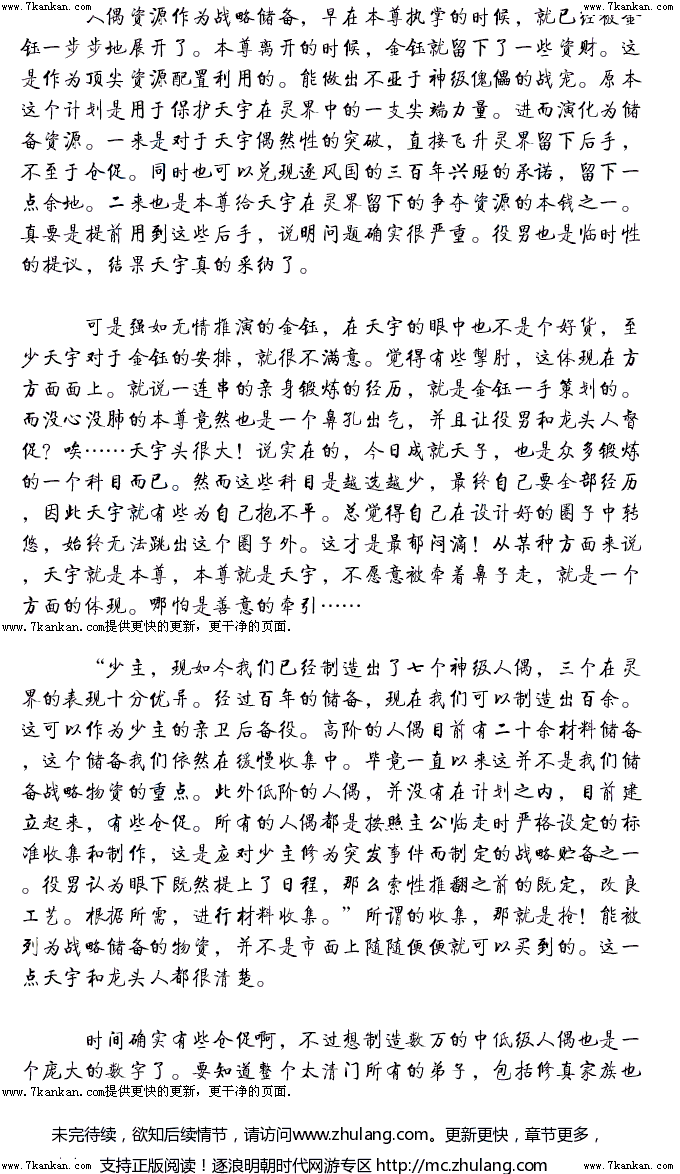 www.7kankan.com www.7kankan.com www.7kankan.com www.7kankan.com
人偶资源作为战略储备，早在本尊执掌的时候，就已经被金
钰一步步地展开了。本尊离开的时候，金钰就留下了一些资财。这
是作为顶尖资源配置利用的。能做出不亚于神级傀儡的战宠。原本
这个计划是用于保护天宇在灵界中的一支尖端力量。进而演化为储
备资源。一来是对于天宇偶然性的突破，直接飞升灵界留下后手，
不至于仓促。同时也可以兑现逐风国的三百年兴旺的承诺，留下一
点余地。二来也是本尊给天宇在灵界留下的争夺资源的本钱之一。
真要是提前用到这些后手，说明问题确实很严重。役男也是临时性
的提议，结果天宇真的采纳了。
可是强如无情推演的金钰，在天宇的眼中也不是个好货，至
少天宇对于金钰的安排，就很不满意。觉得有些掣肘，这体现在方
方面面上。就说一连串的亲身锻炼的经历，就是金钰一手策划的。
而没心没肺的本尊竟然也是一个鼻孔出气，并且让役男和龙头人督
促？唉……天宇头很大！说实在的，今日成就天子，也是众多锻炼
的一个科目而已。然而这些科目是越选越少，最终自己要全部经历
，因此天宇就有些为自己抱不平。总觉得自己在设计好的圈子中转
悠，始终无法跳出这个圈子外。这才是最郁闷滴！从某种方面来说
，天宇就是本尊，本尊就是天宇，不愿意被牵着鼻子走，就是一个
方面的体现。哪怕是善意的牵引……
www.7kankan.com提供更快的更新，更干净的页面.
“少主，现如今我们已经制造出了七个神级人偶，三个在灵
界的表现十分优异。经过百年的储备，现在我们可以制造出百余。
这可以作为少主的亲卫后备役。高阶的人偶目前有二十余材料储备
，这个储备我们依然在缓慢收集中。毕竟一直以来这并不是我们储
备战略物资的重点。此外低阶的人偶，并没有在计划之内，目前建
立起来，有些仓促。所有的人偶都是按照主公临走时严格设定的标
准收集和制作，这是应对少主修为突发事件而制定的战略贮备之一
。役男认为眼下既然提上了日程，那么索性推翻之前的既定，改良
工艺。根据所需，进行材料收集。”所谓的收集，那就是抢！能被
列为战略储备的物资，并不是市面上随随便便就可以买到的。这一
点天宇和龙头人都很清楚。
时间确实有些仓促啊，不过想制造数万的中低级人偶也是一
个庞大的数字了。要知道整个太清门所有的弟子，包括修真家族也
www.7kankan.com提供更快的更新，更干净的页面.
未完待续，欲知后续情节，请访问www.zhulang.com。更新更快，章节更多，
支持正版阅读！逐浪明朝时代网游专区 http://mc.zhulang.com
www.7kankan.com www.7kankan.com www.7kankan.com www.7kankan.com